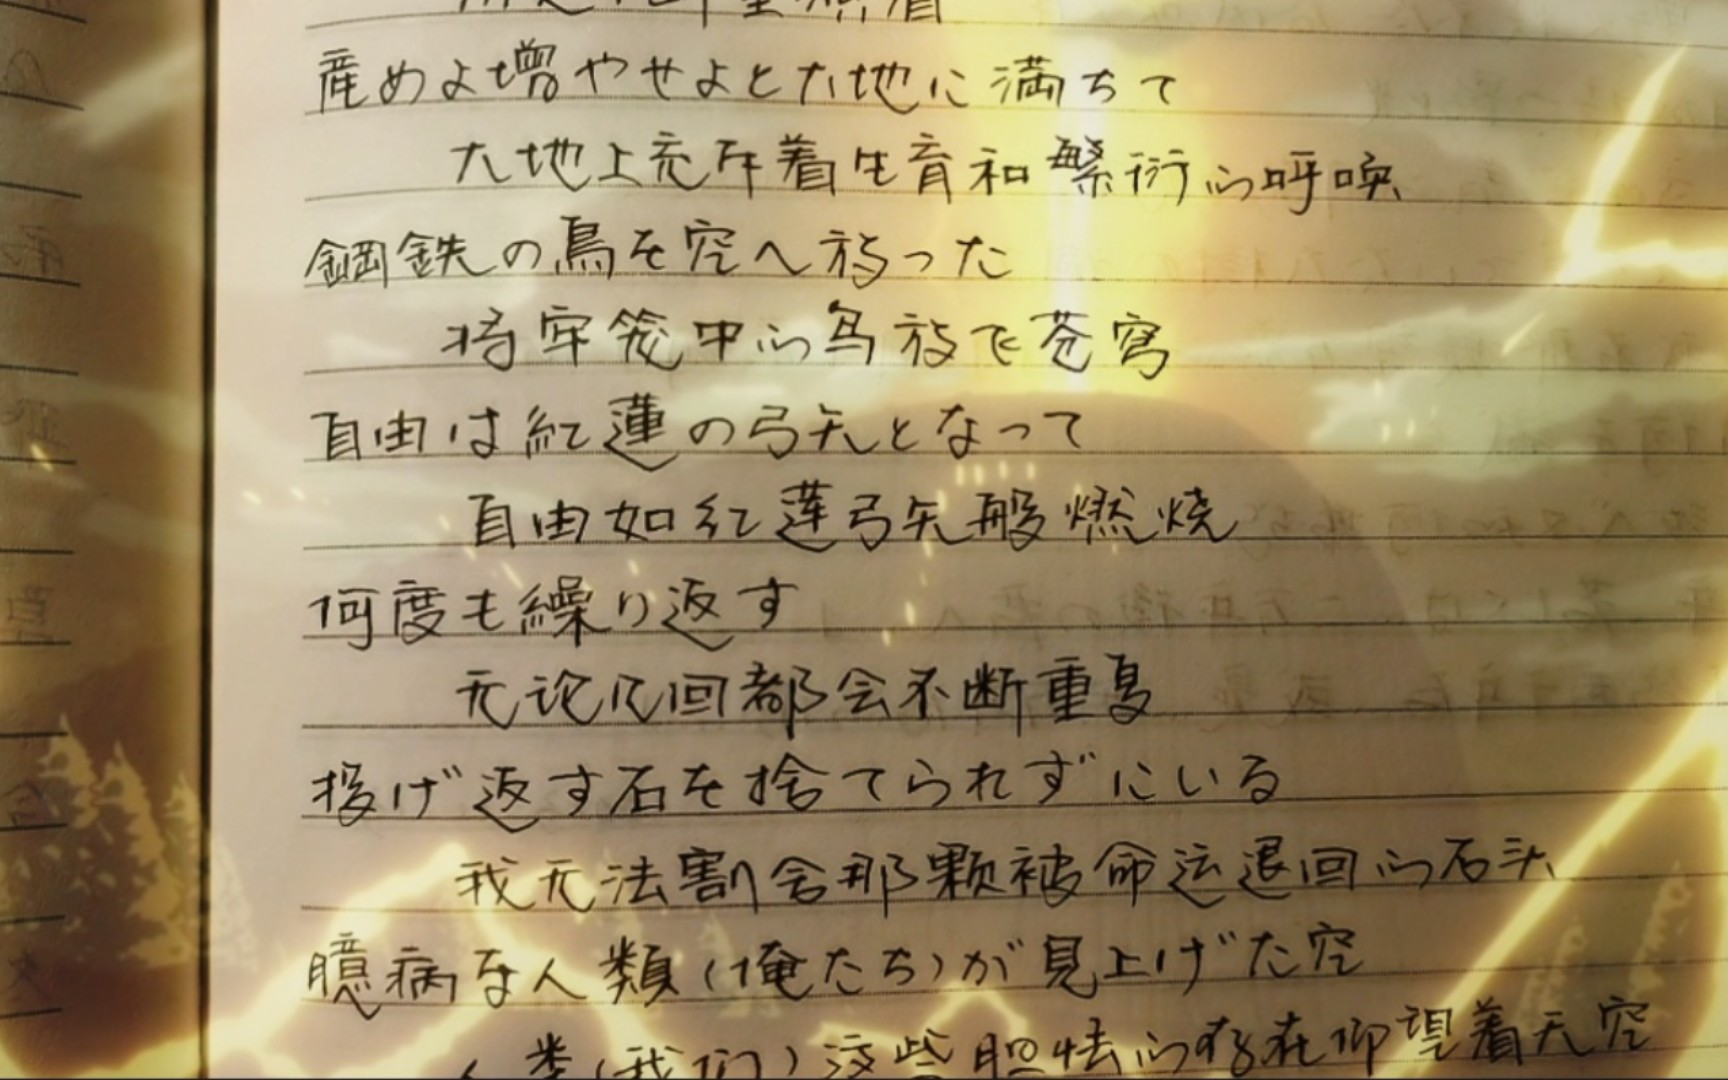 産めよ増やせよと大地に満ちて
大地上充斥着生育和繁衍的呼唤
鋼鉄の鳥を空へ放った
将牢笼中的鸟放飞苍穹
自由は紅蓮の弓矢となって
自由如红莲弓矢般燃烧
何度も繰り返す
无论几回都会不断重复
投げ返す石を捨てられずにいる
我无法割舍那颗被命运退回的石头
臆病な人類(俺たち)が見上げた空
人类(我们)这些胆怯的存在仰望着天空